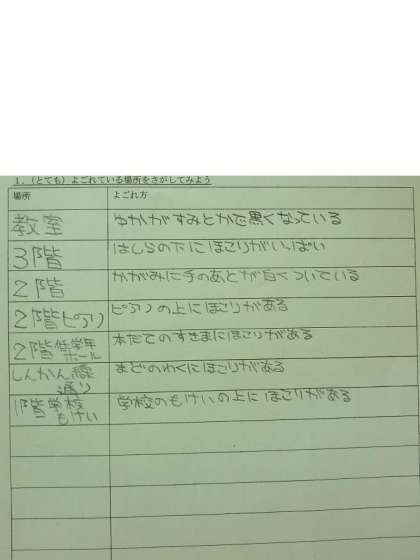 1.（とても）よごれている場所をさがしてみよう
場所 よごれ方
教室 ゆかがすみとかで黒くなっている
3階 はしらの下にほこりがいっぱい
2階 かがみに手のあとが白くついている
2階ピアノ ピアノの上にほこりがある
2階低学年ホール 本たてのすきまにほこりがある
しんかん線通り まどのわくにほこりがある
1階学校もけい 学校のもけいの上にほこりがある